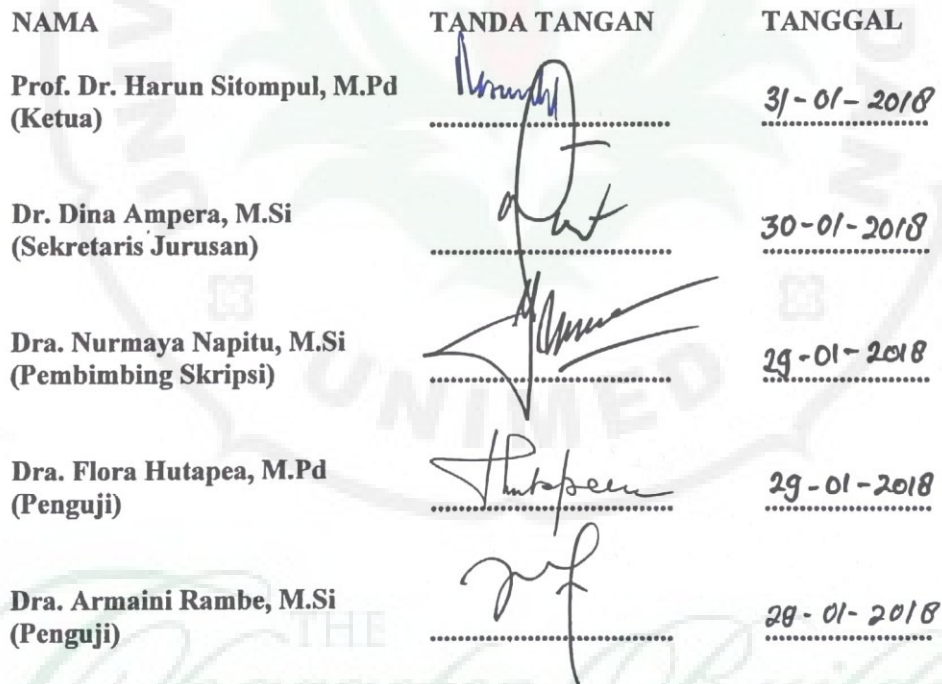 NAMA TANDA TANGAN TANGGAL
Prof. Dr. Harun Sitompul, M.Pd
(Ketua) 31-01-2018
Dr. Dina Ampera, M.Si
(Sekretaris Jurusan) 30-01-2018
Dra. Nurmaya Napitu, M.Si
(Pembimbing Skripsi) 29-01-2018
UNIMED
Dra. Flora Hutapea, M.Pd
(Penguji) 29-01-2018
Dra. Armaini Rambe, M.Si
(Penguji) 29-01-2018
THE